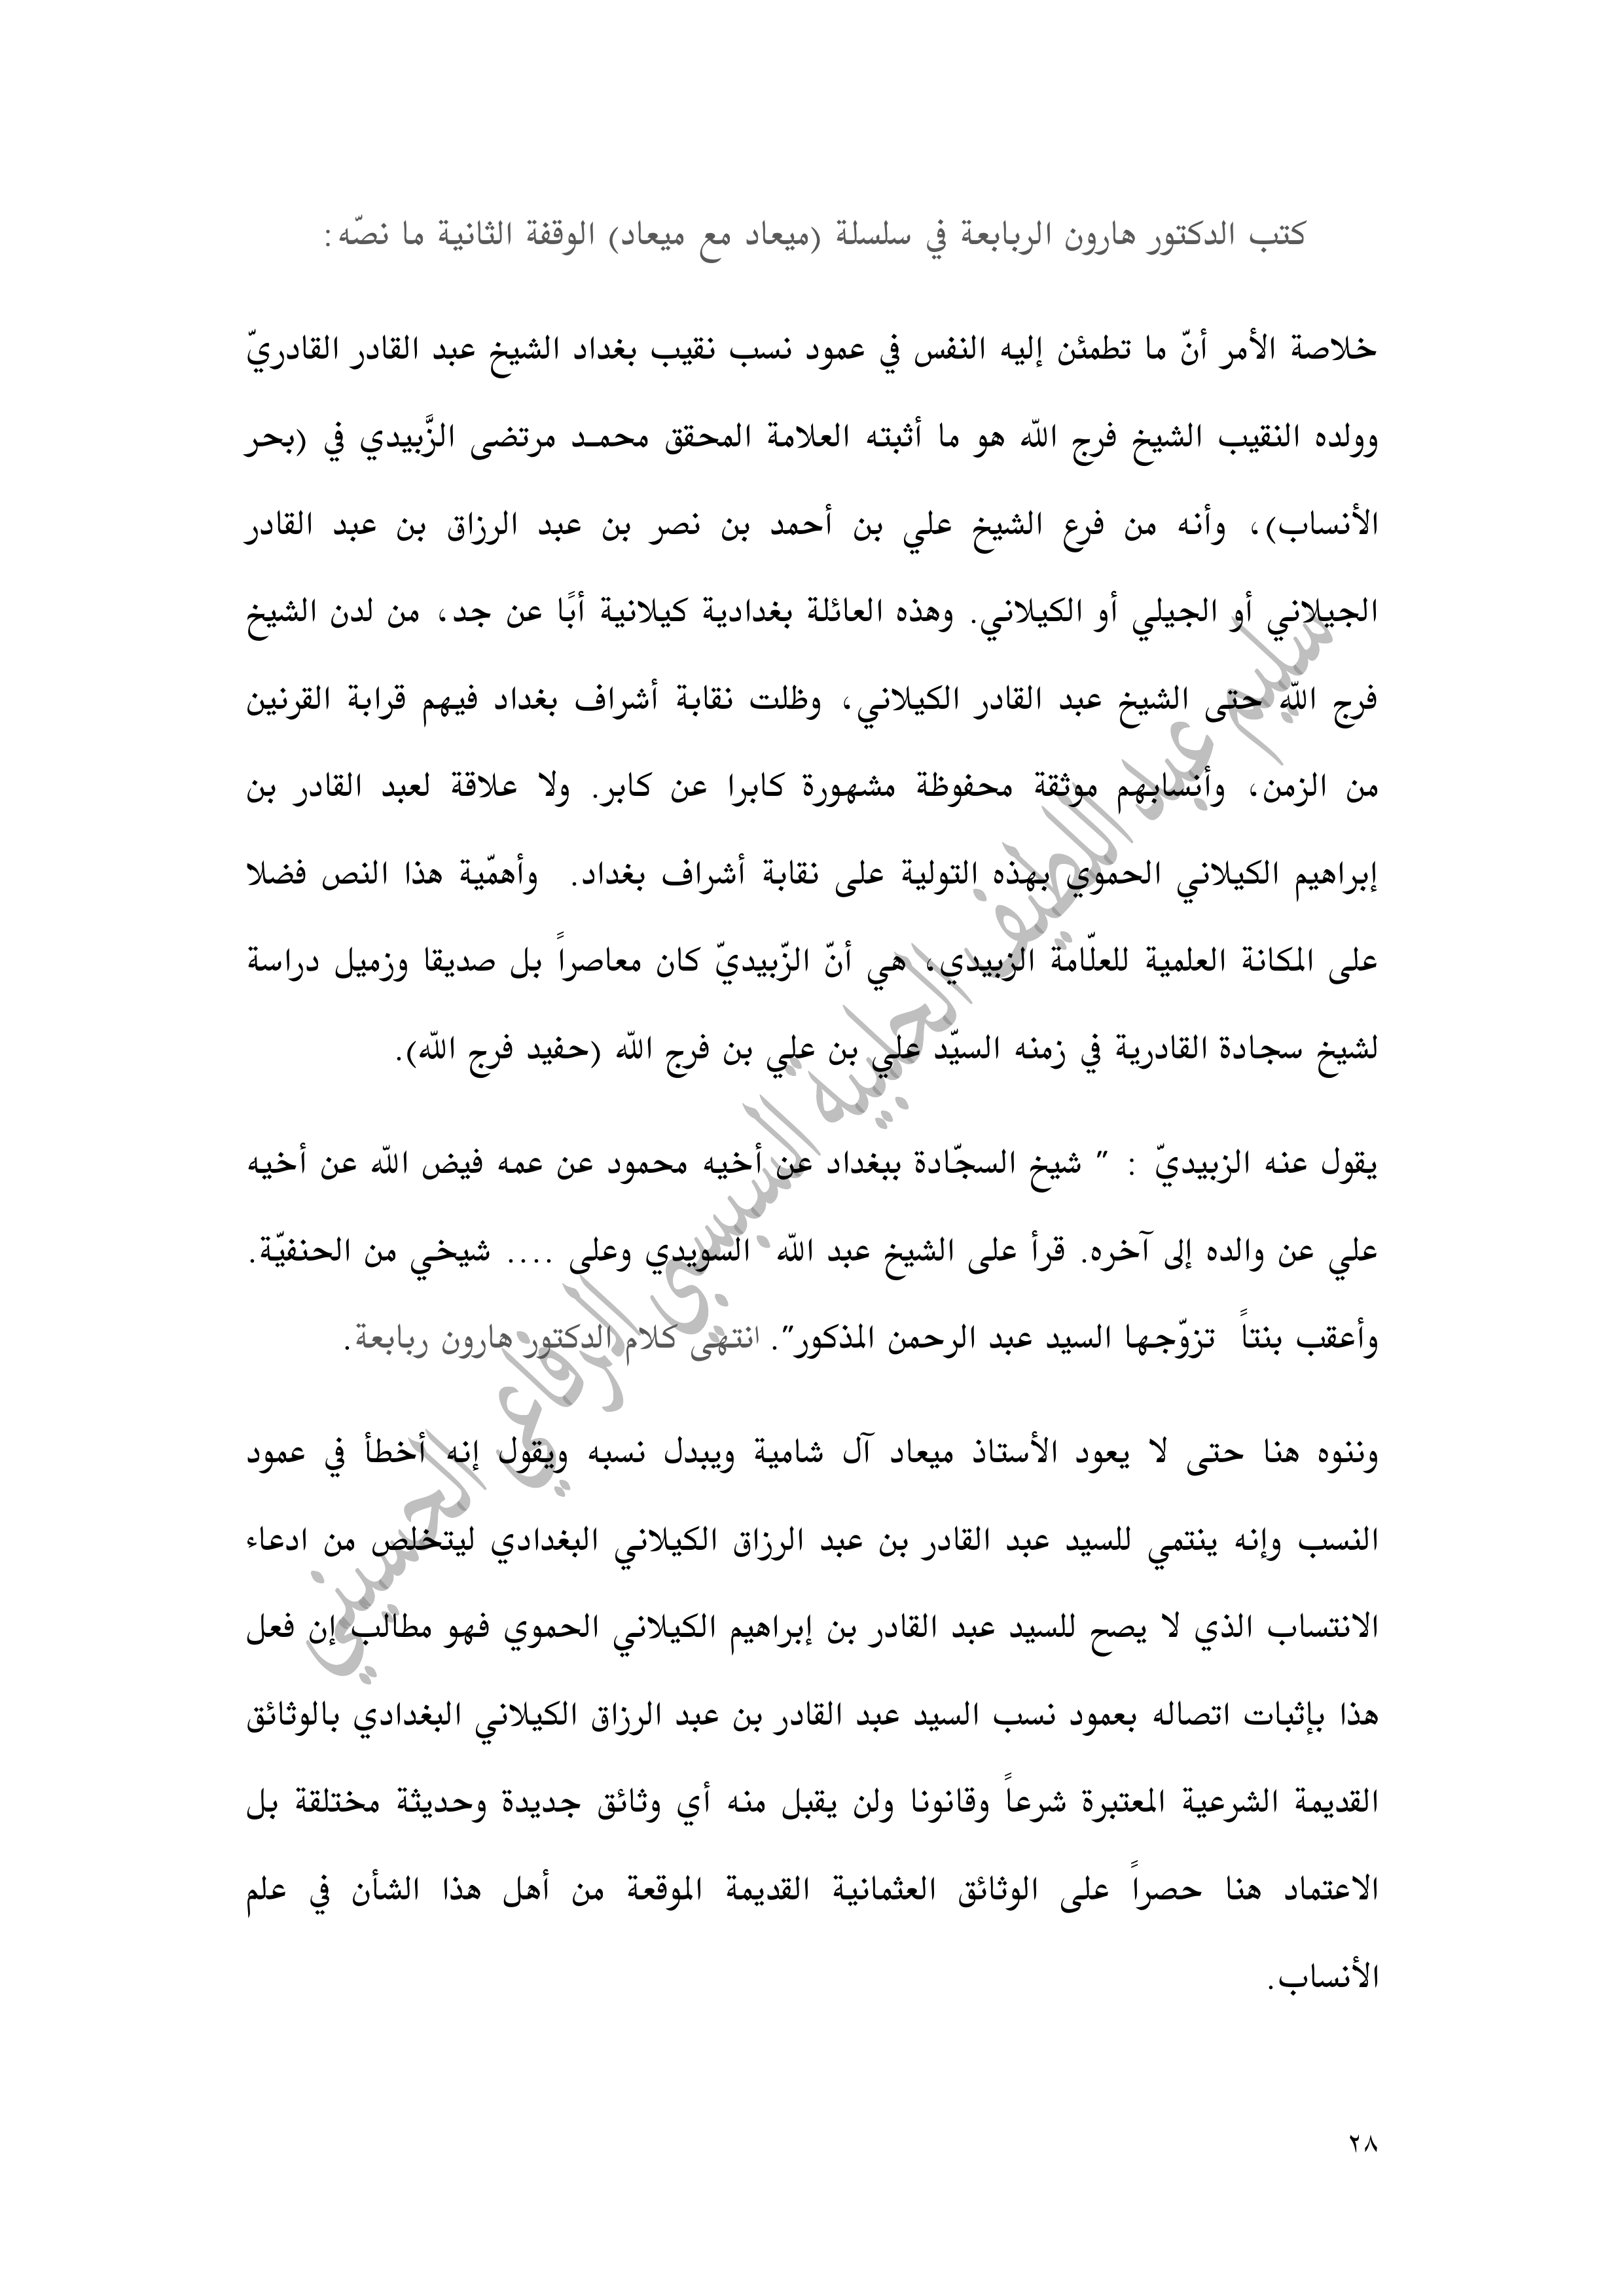 كتب الدكتور هارون الربابعة في سلسلة (ميعاد مع ميعاد) الوقفة الثانية ما نصّه:
خلاصة الأمر أنّ ما تطمئن إليه النفس في عمود نسب نقيب بغداد الشيخ عبد القادر القادريّ
وولده النقيب الشيخ فرج الله هو ما أثبته العلامة المحقق محمـد مرتضى الزَّبيدي في (بحر
الأنساب)، وأنه من فرع الشيخ علي بن أحمد بن نصر بن عبد الرزاق بن عبد القادر
الجيلاني أو الجيلي أو الكيلاني. وهذه العائلة بغدادية كيلانية أبًا عن جد، من لدن الشيخ
فرج الله حتى الشيخ عبد القادر الكيلاني، وظلت نقابة أشراف بغداد فيهم قرابة القرنين
من الزمن، وأنسابهم موثقة محفوظة مشهورة كابرا عن كابر. ولا علاقة لعبد القادر بن
إبراهيم الكيلاني الحموي بهذه التولية على نقابة أشراف بغداد. وأهمّية هذا النص فضلا
على المكانة العلمية للعلّامة الزبيدي، هي أنّ الزّبيديّ كان معاصراً بل صديقا وزميل دراسة
لشيخ سجادة القادرية في زمنه السيّد علي بن علي بن فرج الله (حفيد فرج الله).
يقول عنه الزبيديّ : " شيخ السجّادة ببغداد عن أخيه محمود عن عمه فيض الله عن أخيه
علي عن والده إلى آخره. قرأ على الشيخ عبد الله السويدي وعلى .... شيخي من الحنفيّة.
وأعقب بنتاً تزوّجها السيد عبد الرحمن المذكور". انتهى كلام الدكتور هارون ربابعة.
وننوه هنا حتى لا يعود الأستاذ ميعاد آل شامية ويبدل نسبه ويقول إنه أخطأ في عمود
النسب وإنه ينتمي للسيد عبد القادر بن عبد الرزاق الكيلاني البغدادي ليتخلص من ادعاء
الانتساب الذي لا يصح للسيد عبد القادر بن إبراهيم الكيلاني الحموي فهو مطالب إن فعل
هذا بإثبات اتصاله بعمود نسب السيد عبد القادر بن عبد الرزاق الكيلاني البغدادي بالوثائق
القديمة الشرعية المعتبرة شرعاً وقانونا ولن يقبل منه أي وثائق جديدة وحديثة مختلقة بل
الاعتماد هنا حصراً على الوثائق العثمانية القديمة الموقعة من أهل هذا الشأن في علم
الأنساب.
سليم عبد اللطيف الحلبية السبسبي الرفاعي الحسيني
٢٨